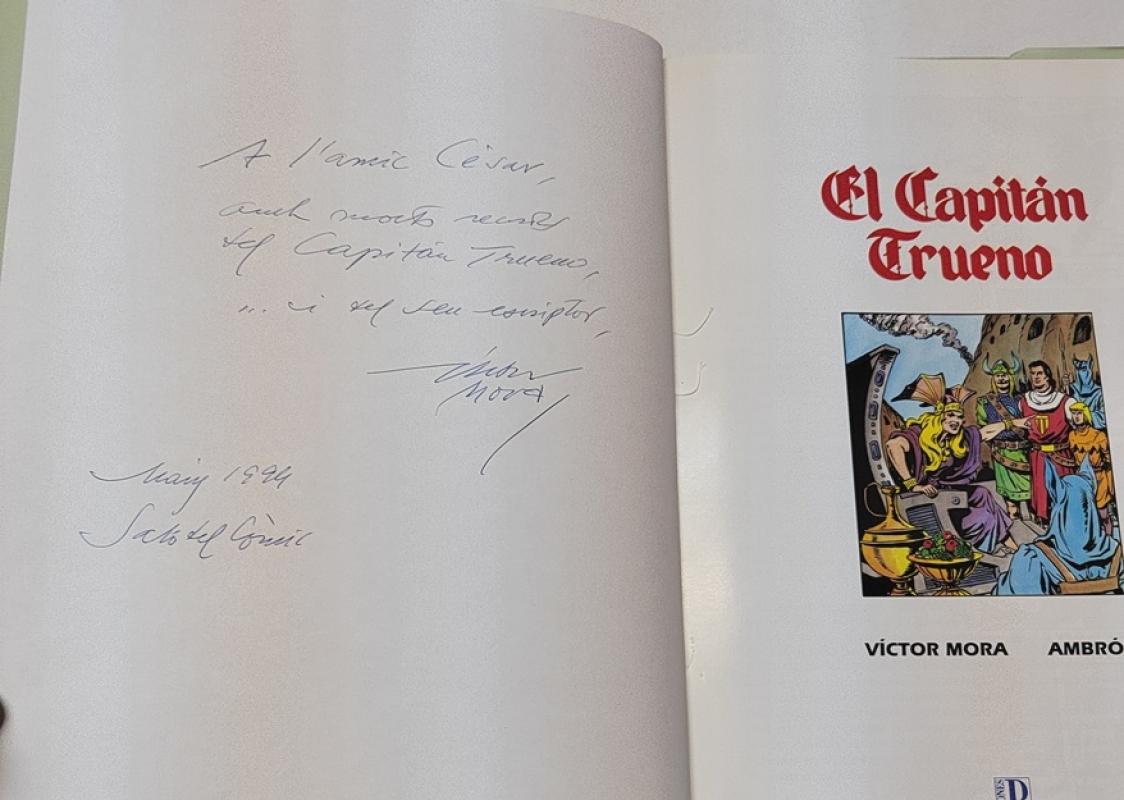 A l'amic Cèsar,
amb molts records
del Capitán Trueno,
... i del seu escriptor,
Víctor
Mora
Maig 1994
Saló del Còmic
El Capitán
Trueno
VÍCTOR MORA AMBRÓ